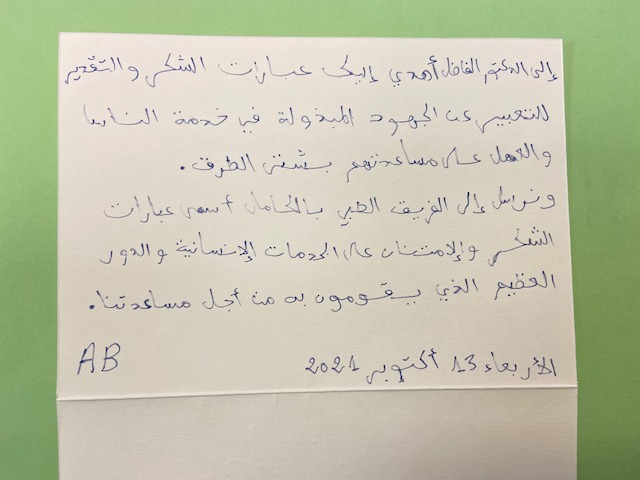 إلى الدكتور الفاضل أهدي إليك عبارات الشكر والتقدير
للتعبير عن الجهود المبذولة في خدمة الناس
والعمل على مساعدتهم بشتى الطرق.
ونرسل إلى الفريق الطبي بالكامل أسمى عبارات
الشكر والامتنان على الخدمات الإنسانية والدور
العظيم الذي يقومون به من أجل مساعدتنا.
الأربعاء 13 أكتوبر 2021 AB